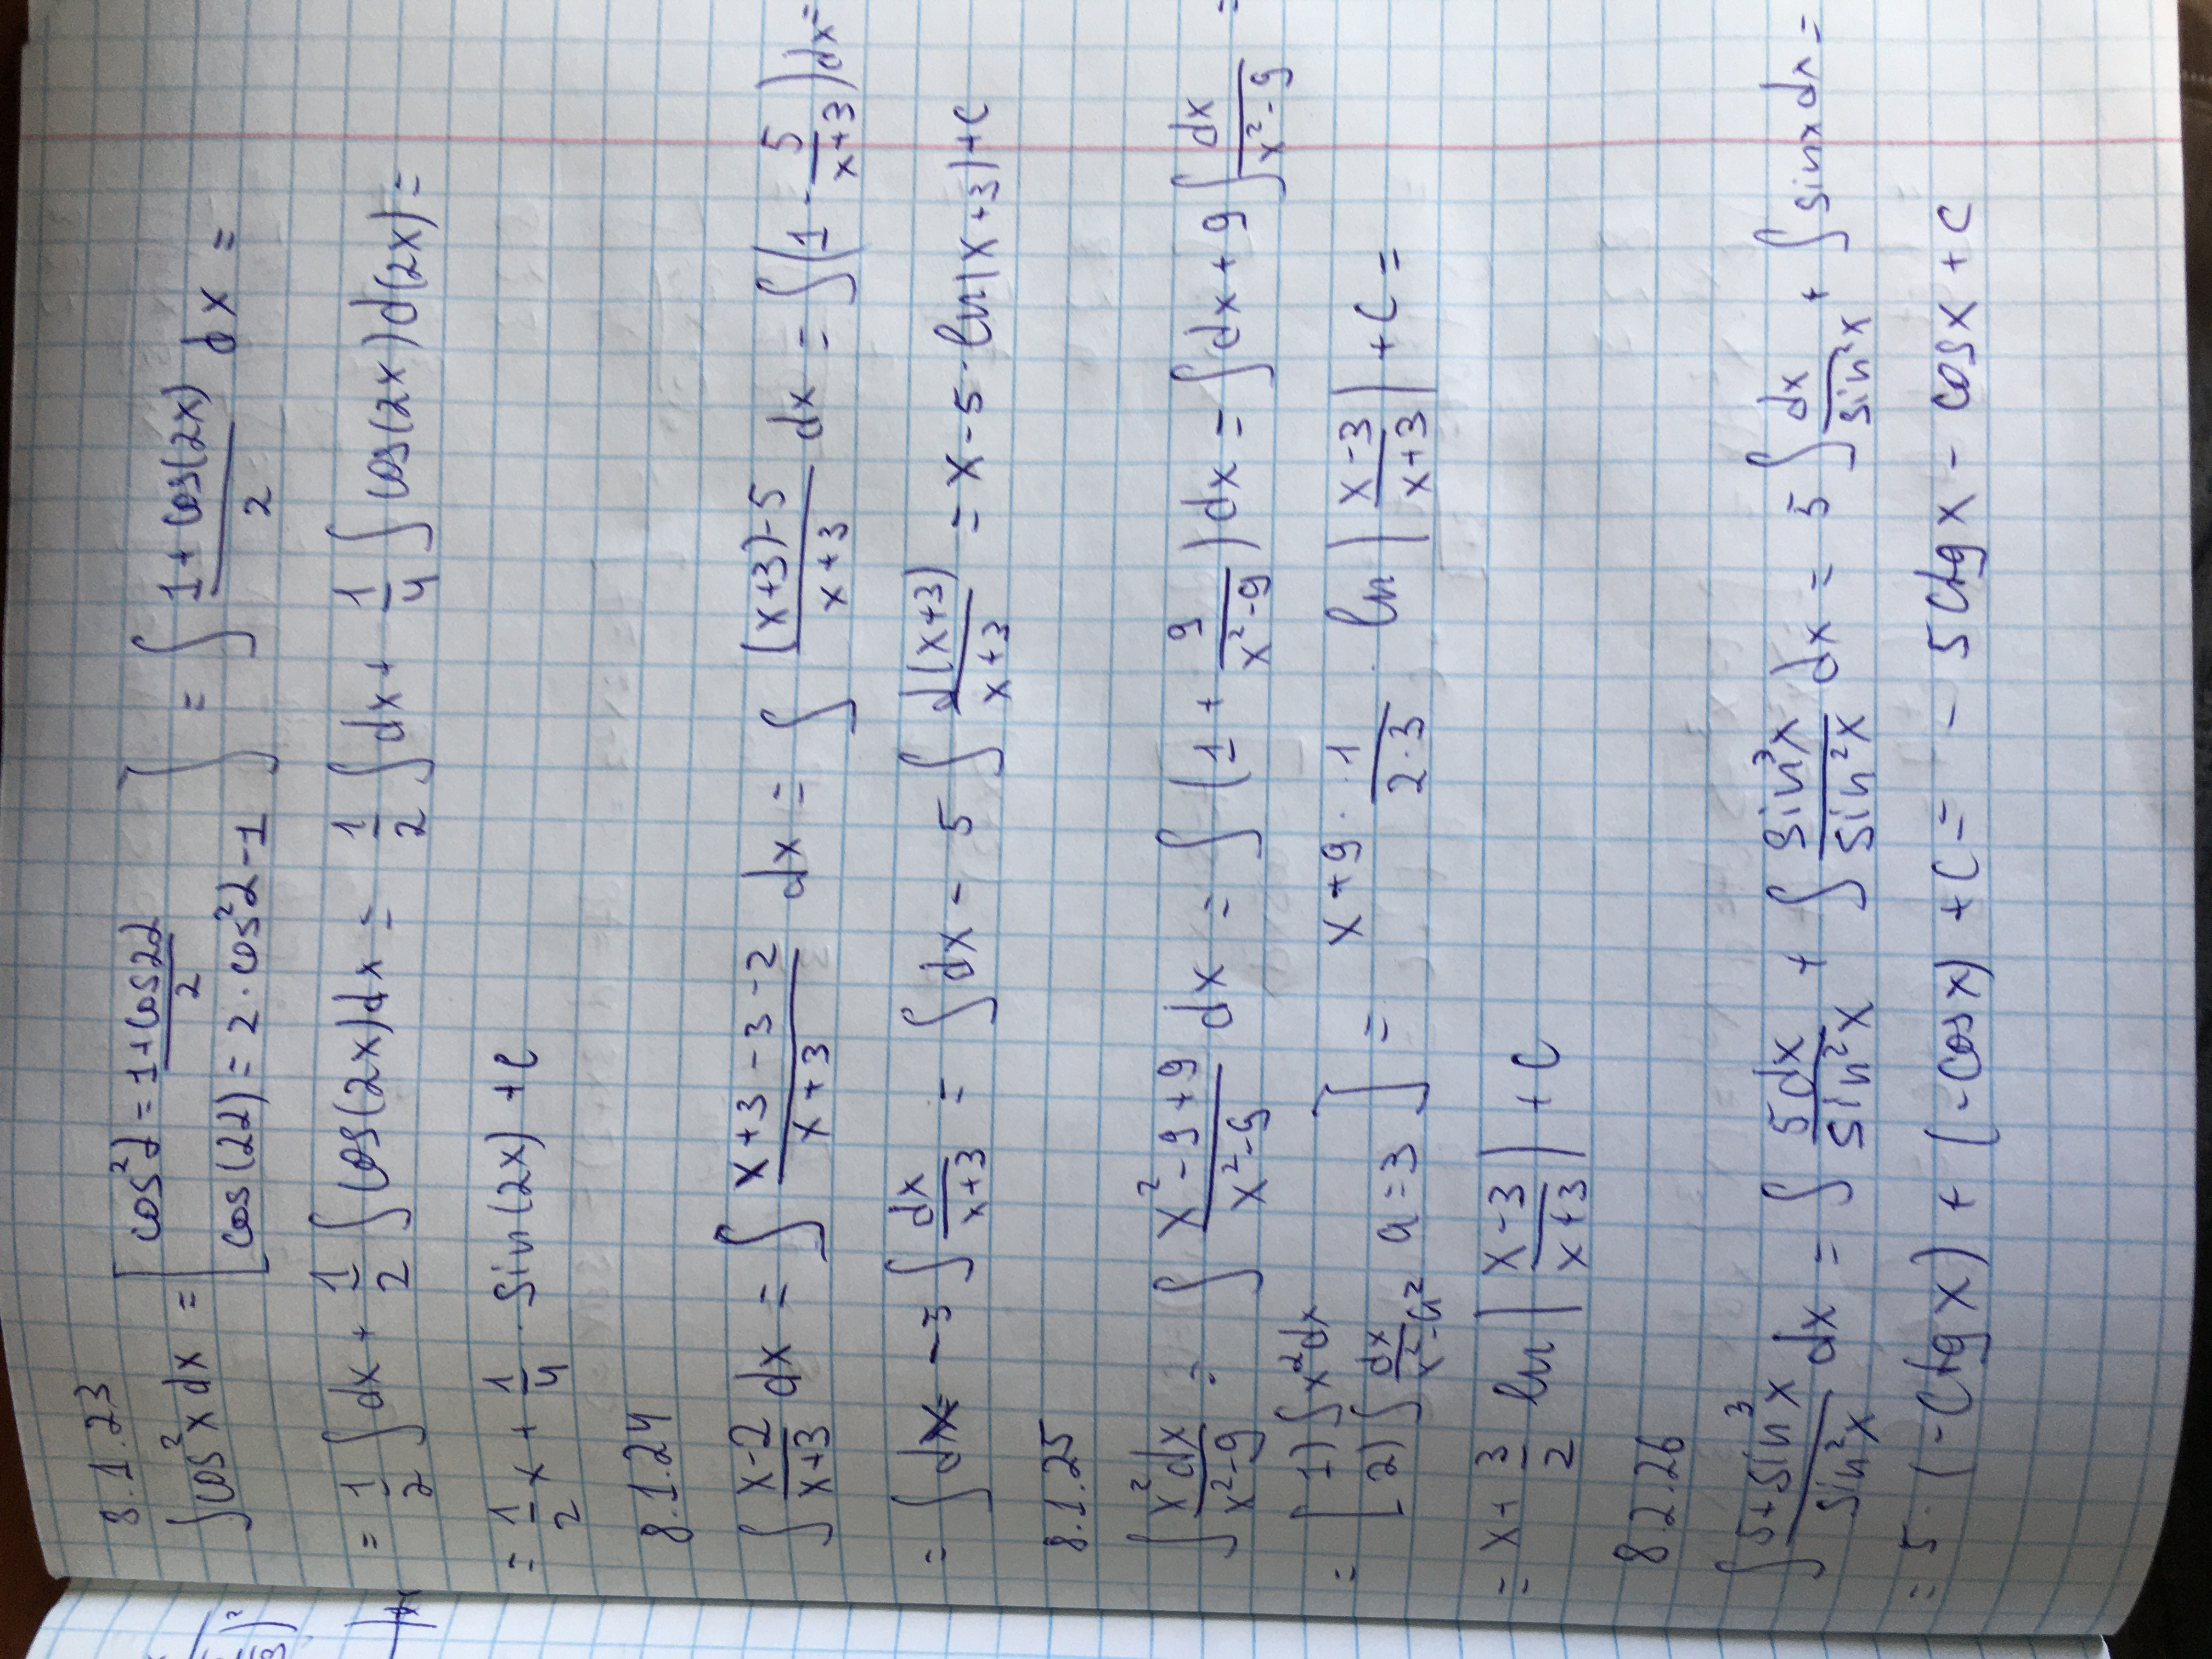 8.1.23
∫cos²x dx = [cos²α = (1+cos2α)/2
cos(2α) = 2·cos²α-1] = ∫ (1+cos(2x))/2 dx =
= 1/2 ∫dx + 1/2 ∫cos(2x)dx = 1/2 ∫dx + 1/4 ∫cos(2x)d(2x) =
= 1/2 x + 1/4 · sin(2x) + C
8.1.24
∫ (x-2)/(x+3) dx = ∫ (x+3-3-2)/(x+3) dx = ∫ ((x+3)-5)/(x+3) dx = ∫(1 - 5/(x+3))dx =
= ∫dx - 5 ∫ dx/(x+3) = ∫dx - 5 ∫ d(x+3)/(x+3) = x - 5·ln|x+3| + C
8.1.25
∫ x²dx/(x²-9) = ∫ (x²-9+9)/(x²-9) dx = ∫(1 + 9/(x²-9))dx = ∫dx + 9∫ dx/(x²-9) =
= [1) ∫x²dx
2) ∫ dx/(x²-a²) a=3] = x + 9 · 1/(2·3) · ln|(x-3)/(x+3)| + C =
= x + 3/2 ln|(x-3)/(x+3)| + C
8.2.26
∫ (5+sin³x)/sin²x dx = ∫ 5dx/sin²x + ∫ sin³x/sin²x dx = 5∫ dx/sin²x + ∫sinx dx =
= 5·(-ctgx) + (-cosx) + C = -5ctgx - cosx + C